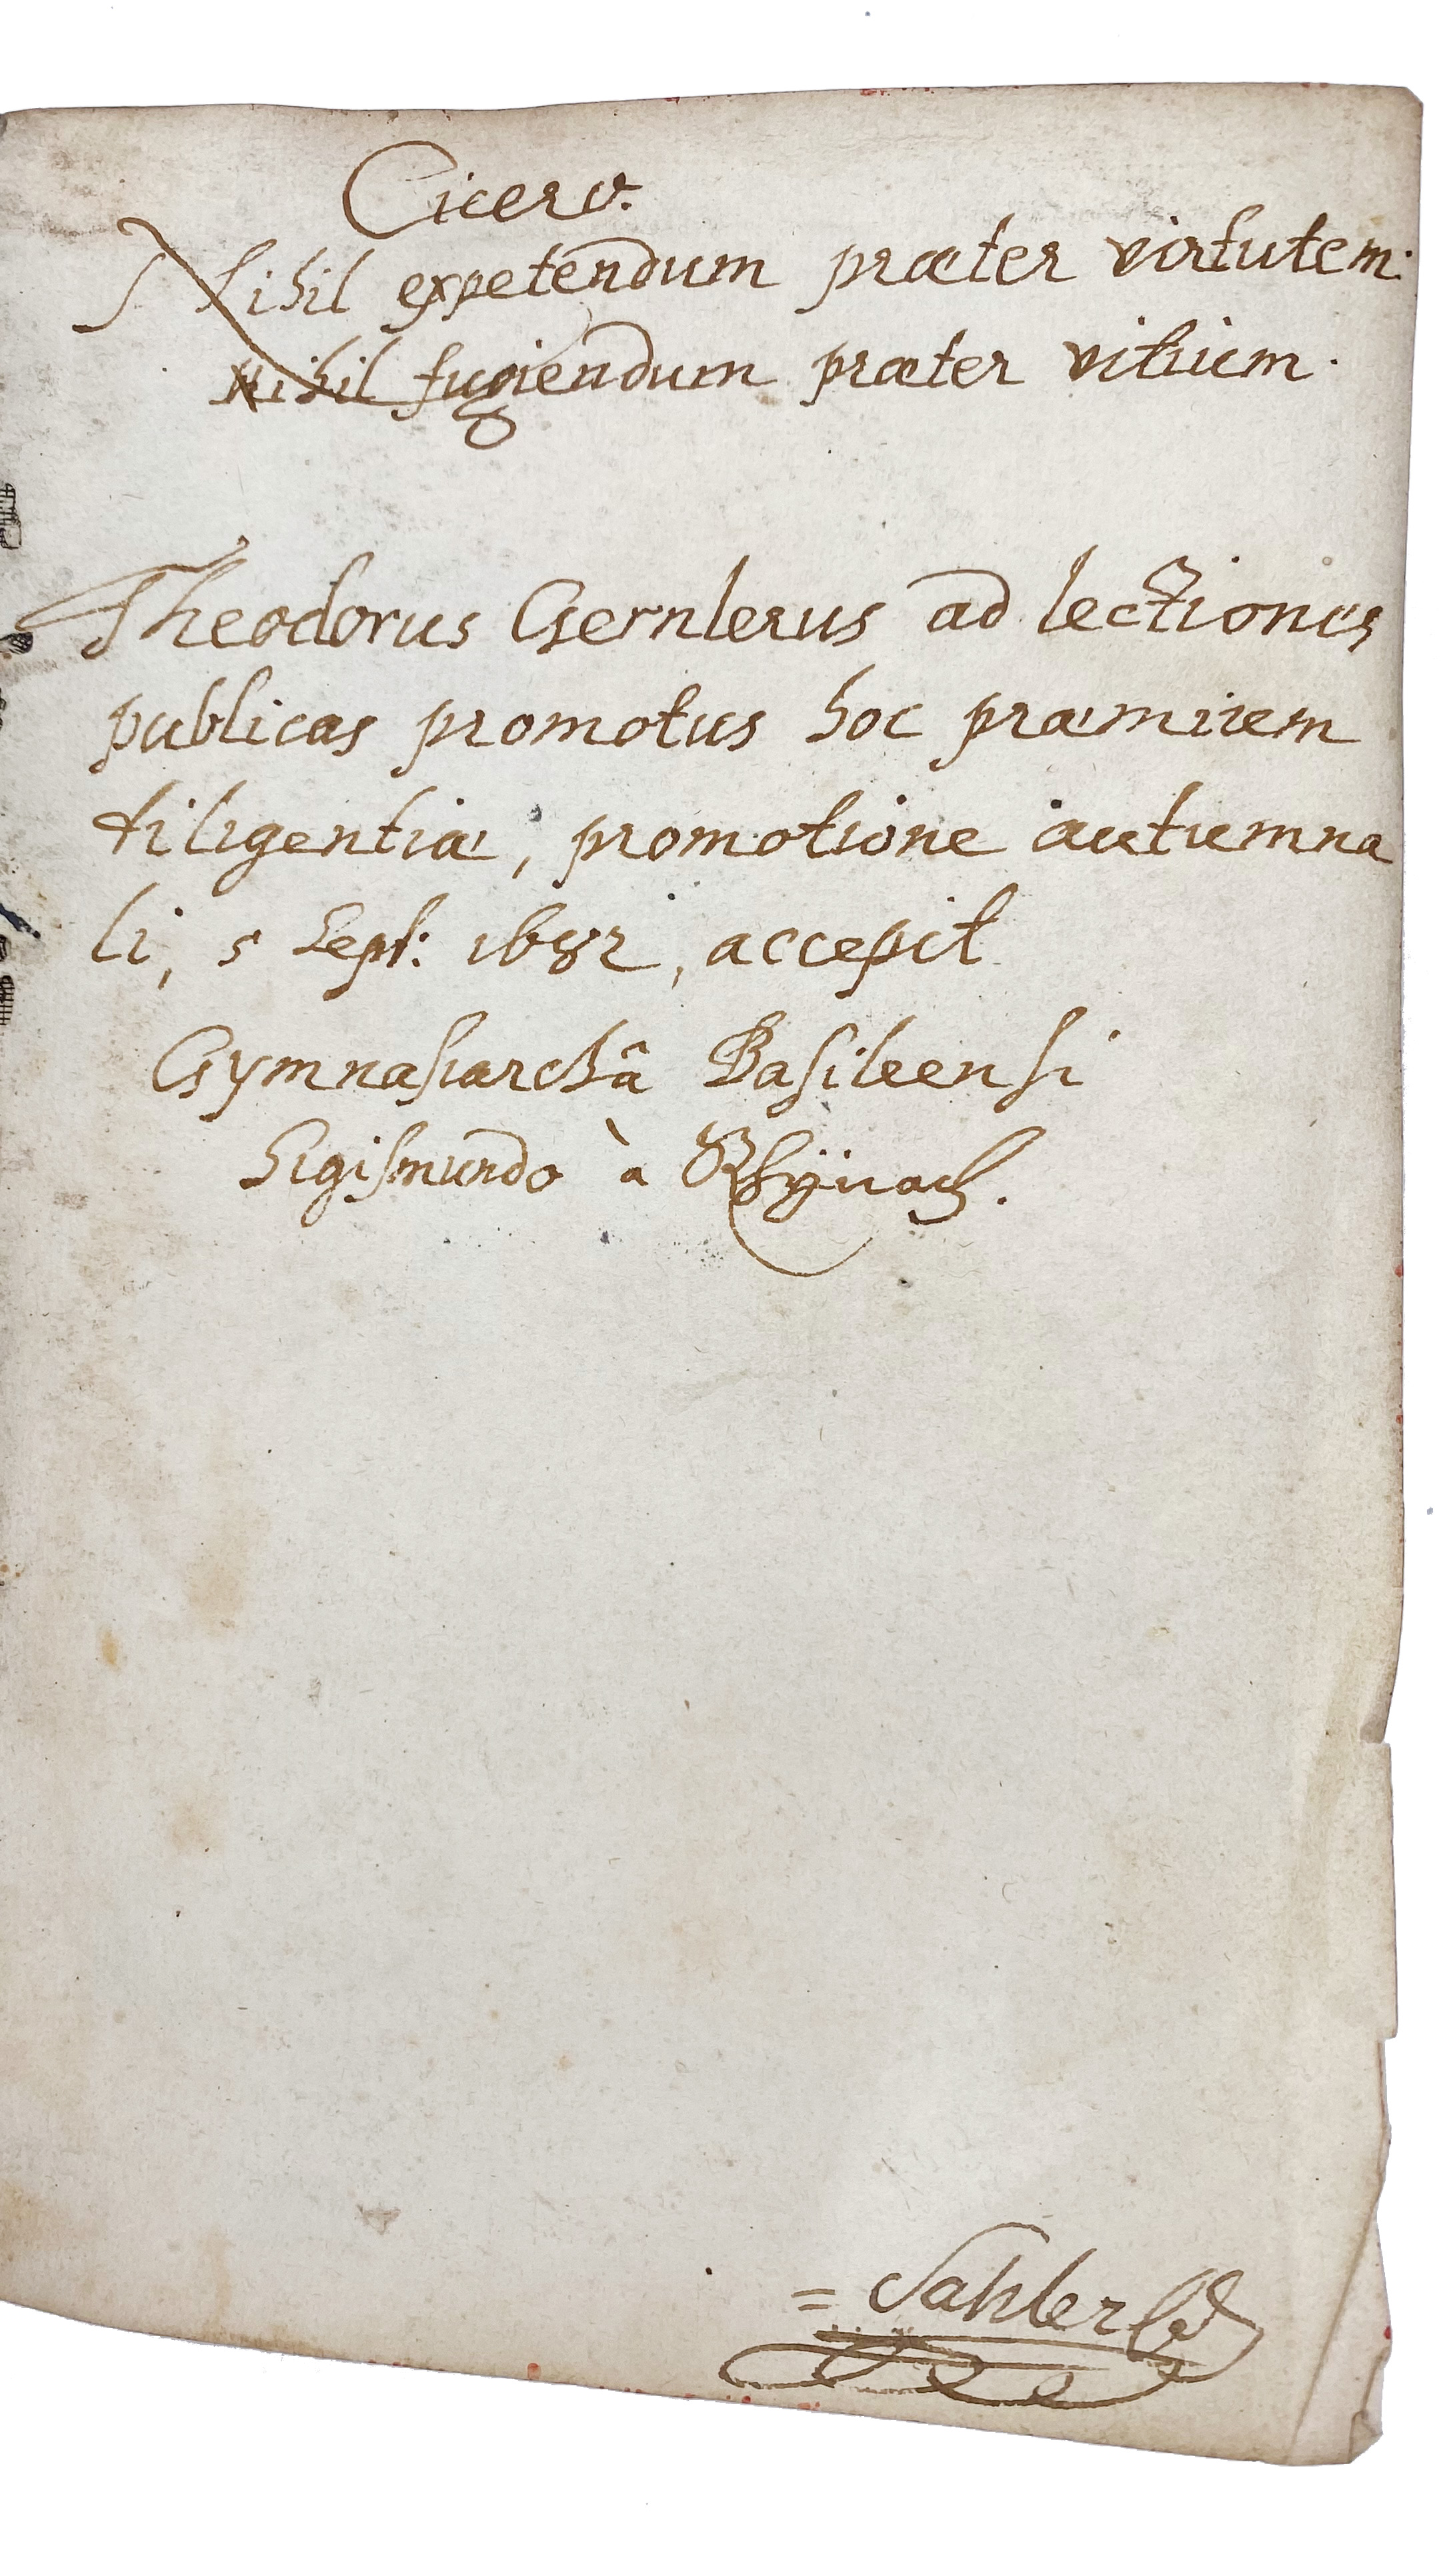 Cicero.
Nihil expetendum præter virtutem:
Nihil fugiendum præter vitium.
Theodorus Gernlerus ad lectiones
publicas promotus hoc præmium
diligentiæ, promotione autumna
li, 5 Sept: 1682, accepit
Gymnasiarchâ Basileensi
Sigismundo à Rhÿnach.
= Sahler